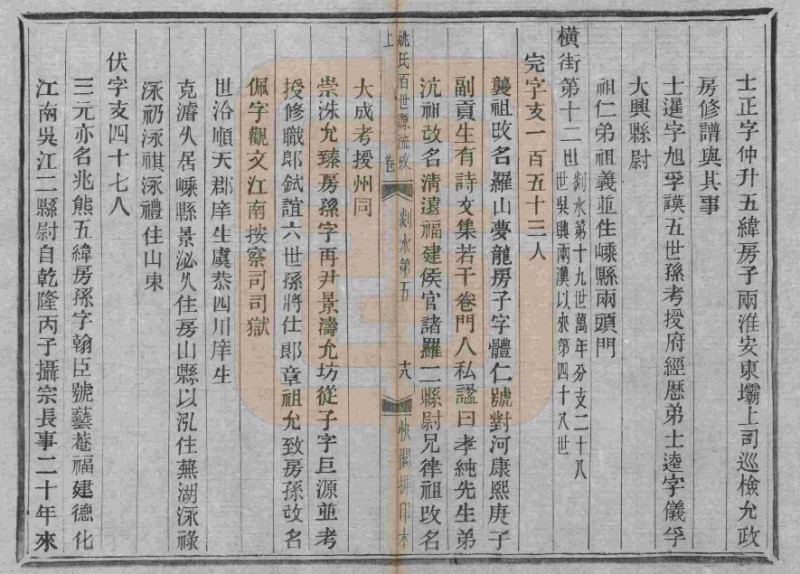 士正字仲升五緯房子兩淮安東壩上司巡檢允政
房修譜與其事
士暹字旭孚謨五世孫考授府經歷弟士逵字儀孚
大興縣尉
祖仁弟祖義並住嵊縣兩頭門
橫街第十二世剡水第十九世萬年分支二十八
世吳興兩漢以來第四十八世
完字支一百五十三人
襲祖改名羅山夢龍房子字體仁號對河康熙庚子
副貢生有詩文集若干卷門人私諡曰孝純先生弟
沆祖改名淸遠福建侯官諸羅二縣尉兄律祖改名
大成考授州同
姚氏百世源流攷 卷上 剡水第五 十八 快閣排印本
崇洙允臻房孫字再尹景濤允坊從子字巨源並考
授修職郞銊誼六世孫將仕郞章祖允致房孫改名
佩字觀文江南按察司司獄
世洽順天郡庠生虞恭四川庠生
克濬久居嵊縣景泌久住房山縣以泓住蕪湖泳祿
泳礽泳祺泳禮住山東
伏字支四十七人
三元亦名兆熊五緯房孫字翰臣號藝菴福建德化
江南吳江二縣尉自乾隆丙子攝宗長事二十年來